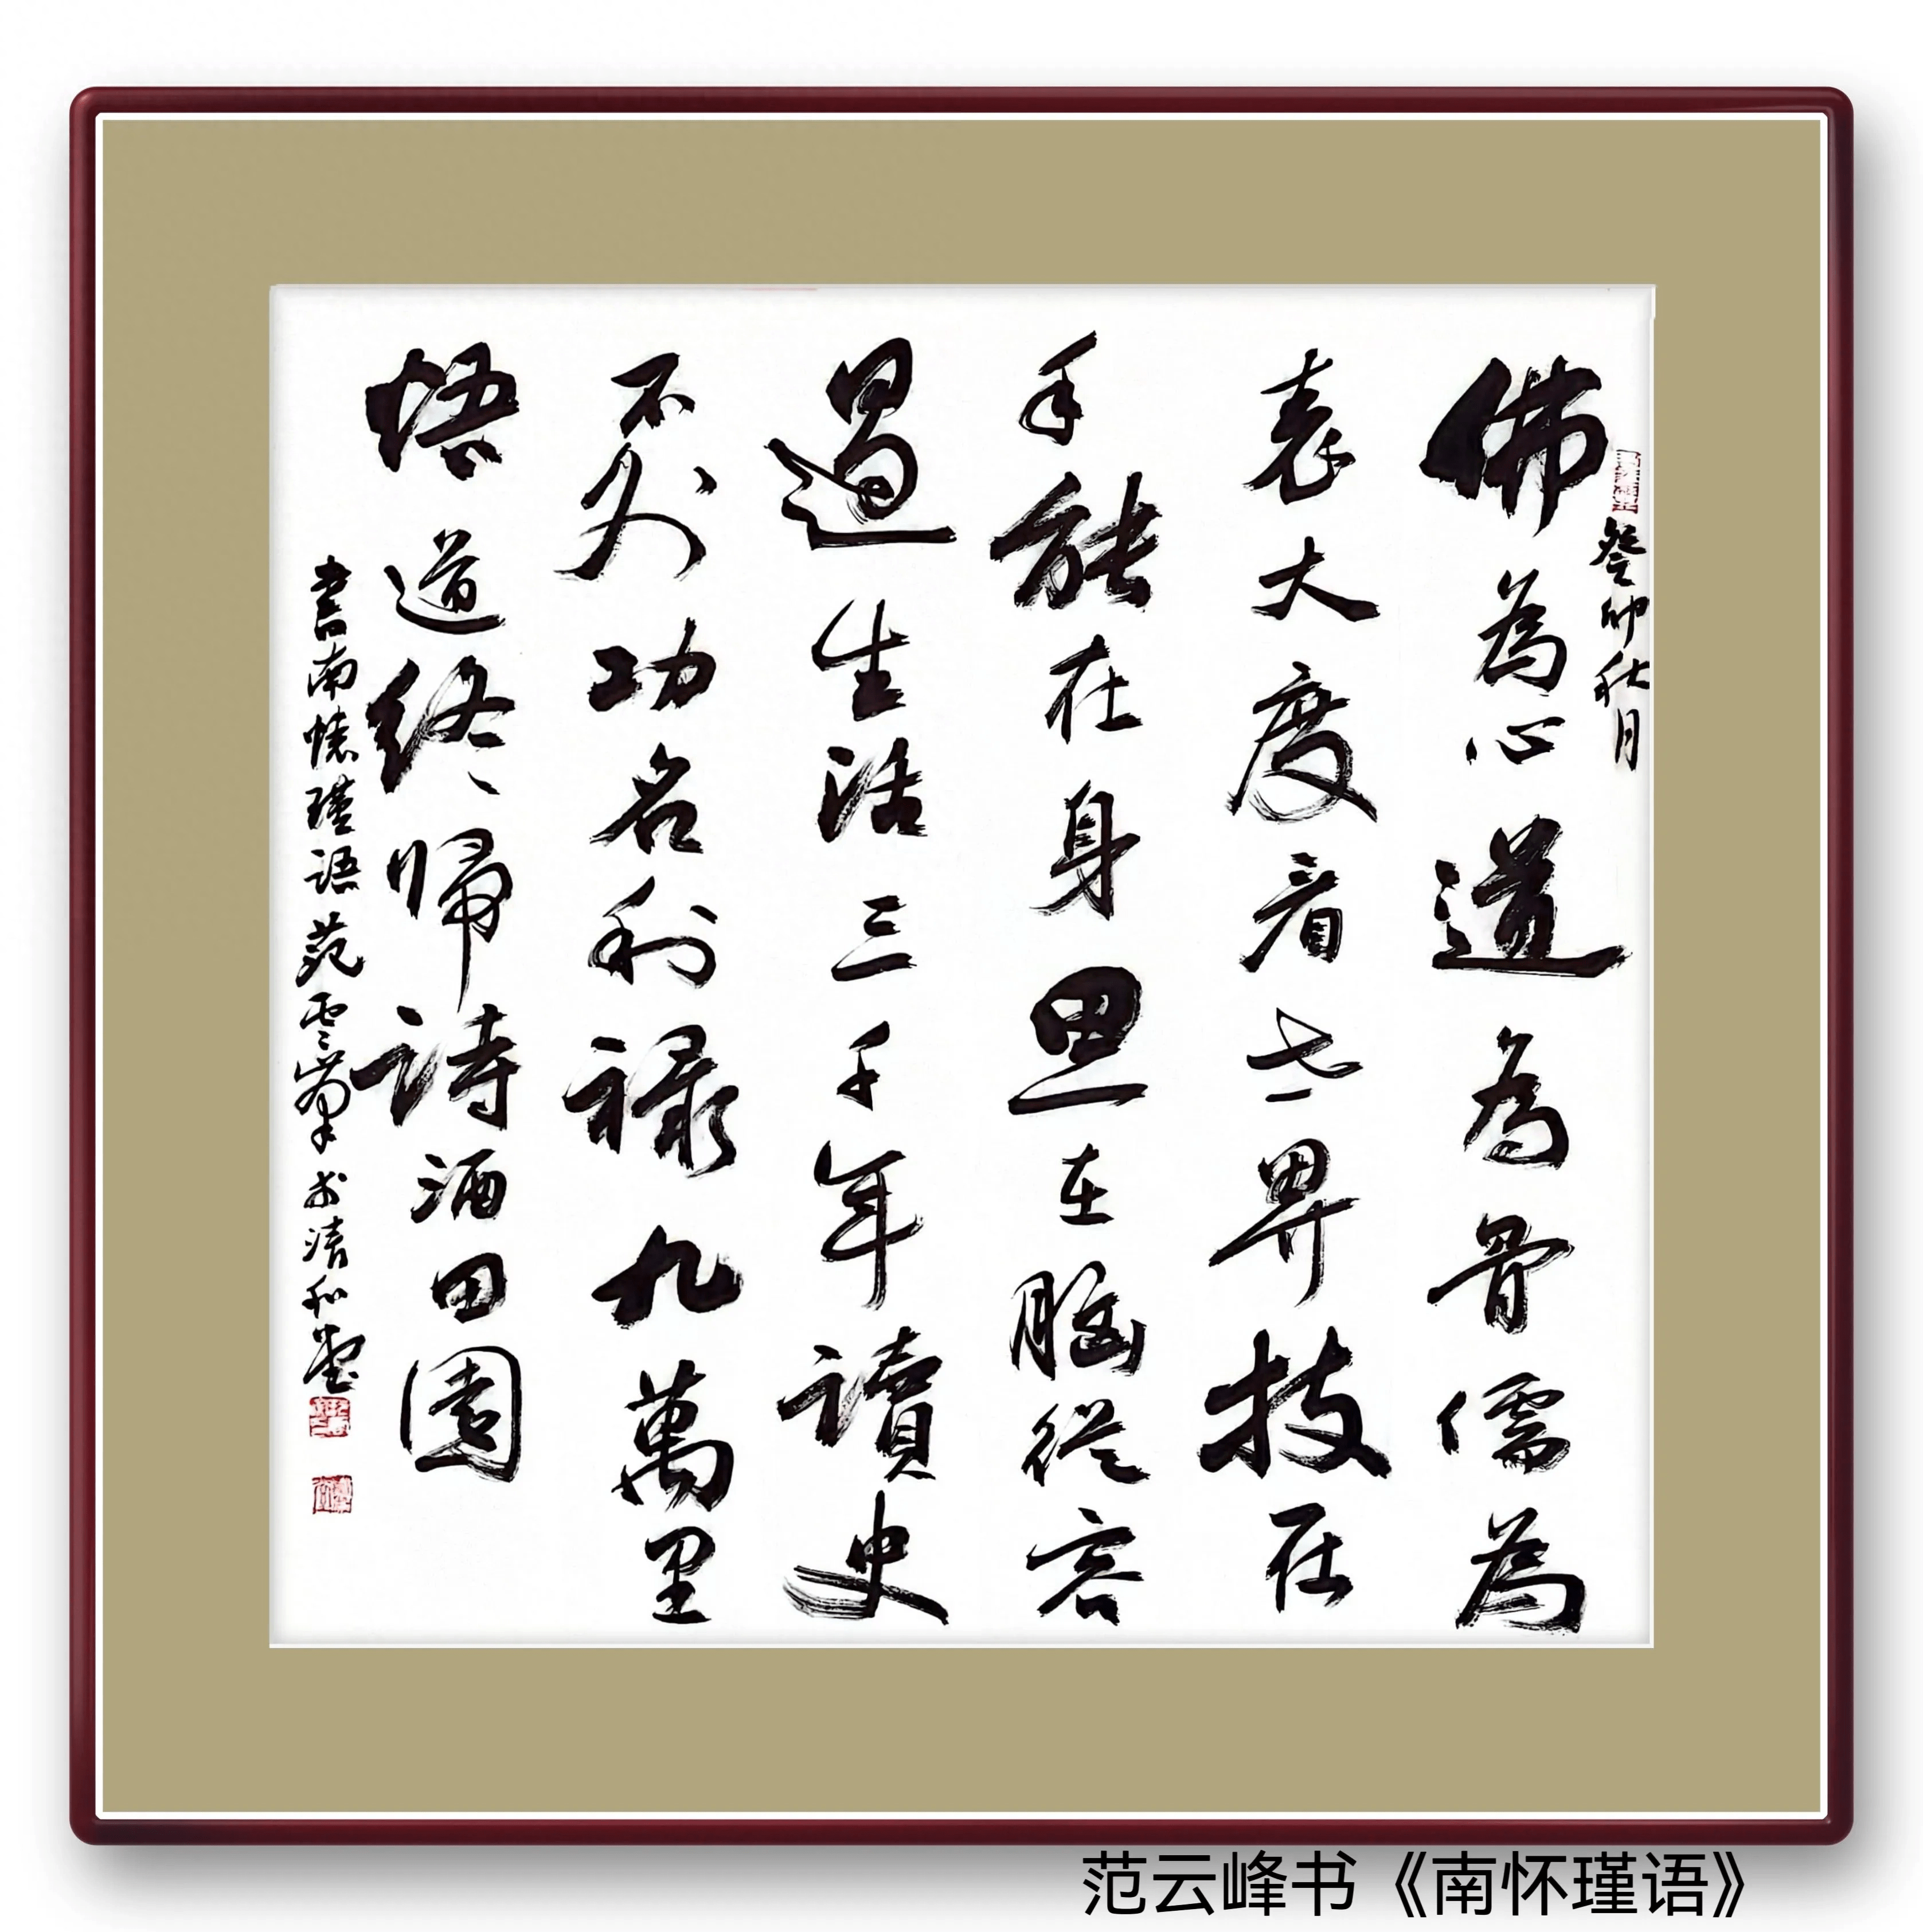 癸卯秋月
佛為心道為骨儒為
表大度看世界技在
手能在身思在腦從容
過生活三千年讀史
不外功名利祿九萬里
悟道終帰詩酒田園
書南懷瑾語范雲峯於清和堂
范云峰书《南怀瑾语》